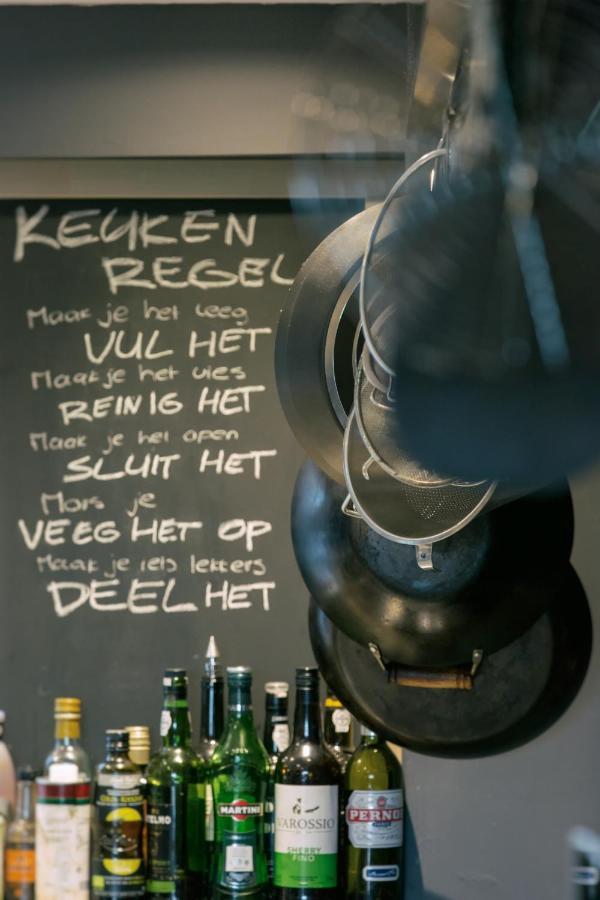 KEUKEN
REGEL
Maak je het leeg
VUL HET
Maak je het vies
REINIG HET
Maak je het open
SLUIT HET
Mors je
VEEG HET OP
Maak je iets lekkers
DEEL HET
MARTINI
VAROSSIO
SHERRY
FINO
PERNOD